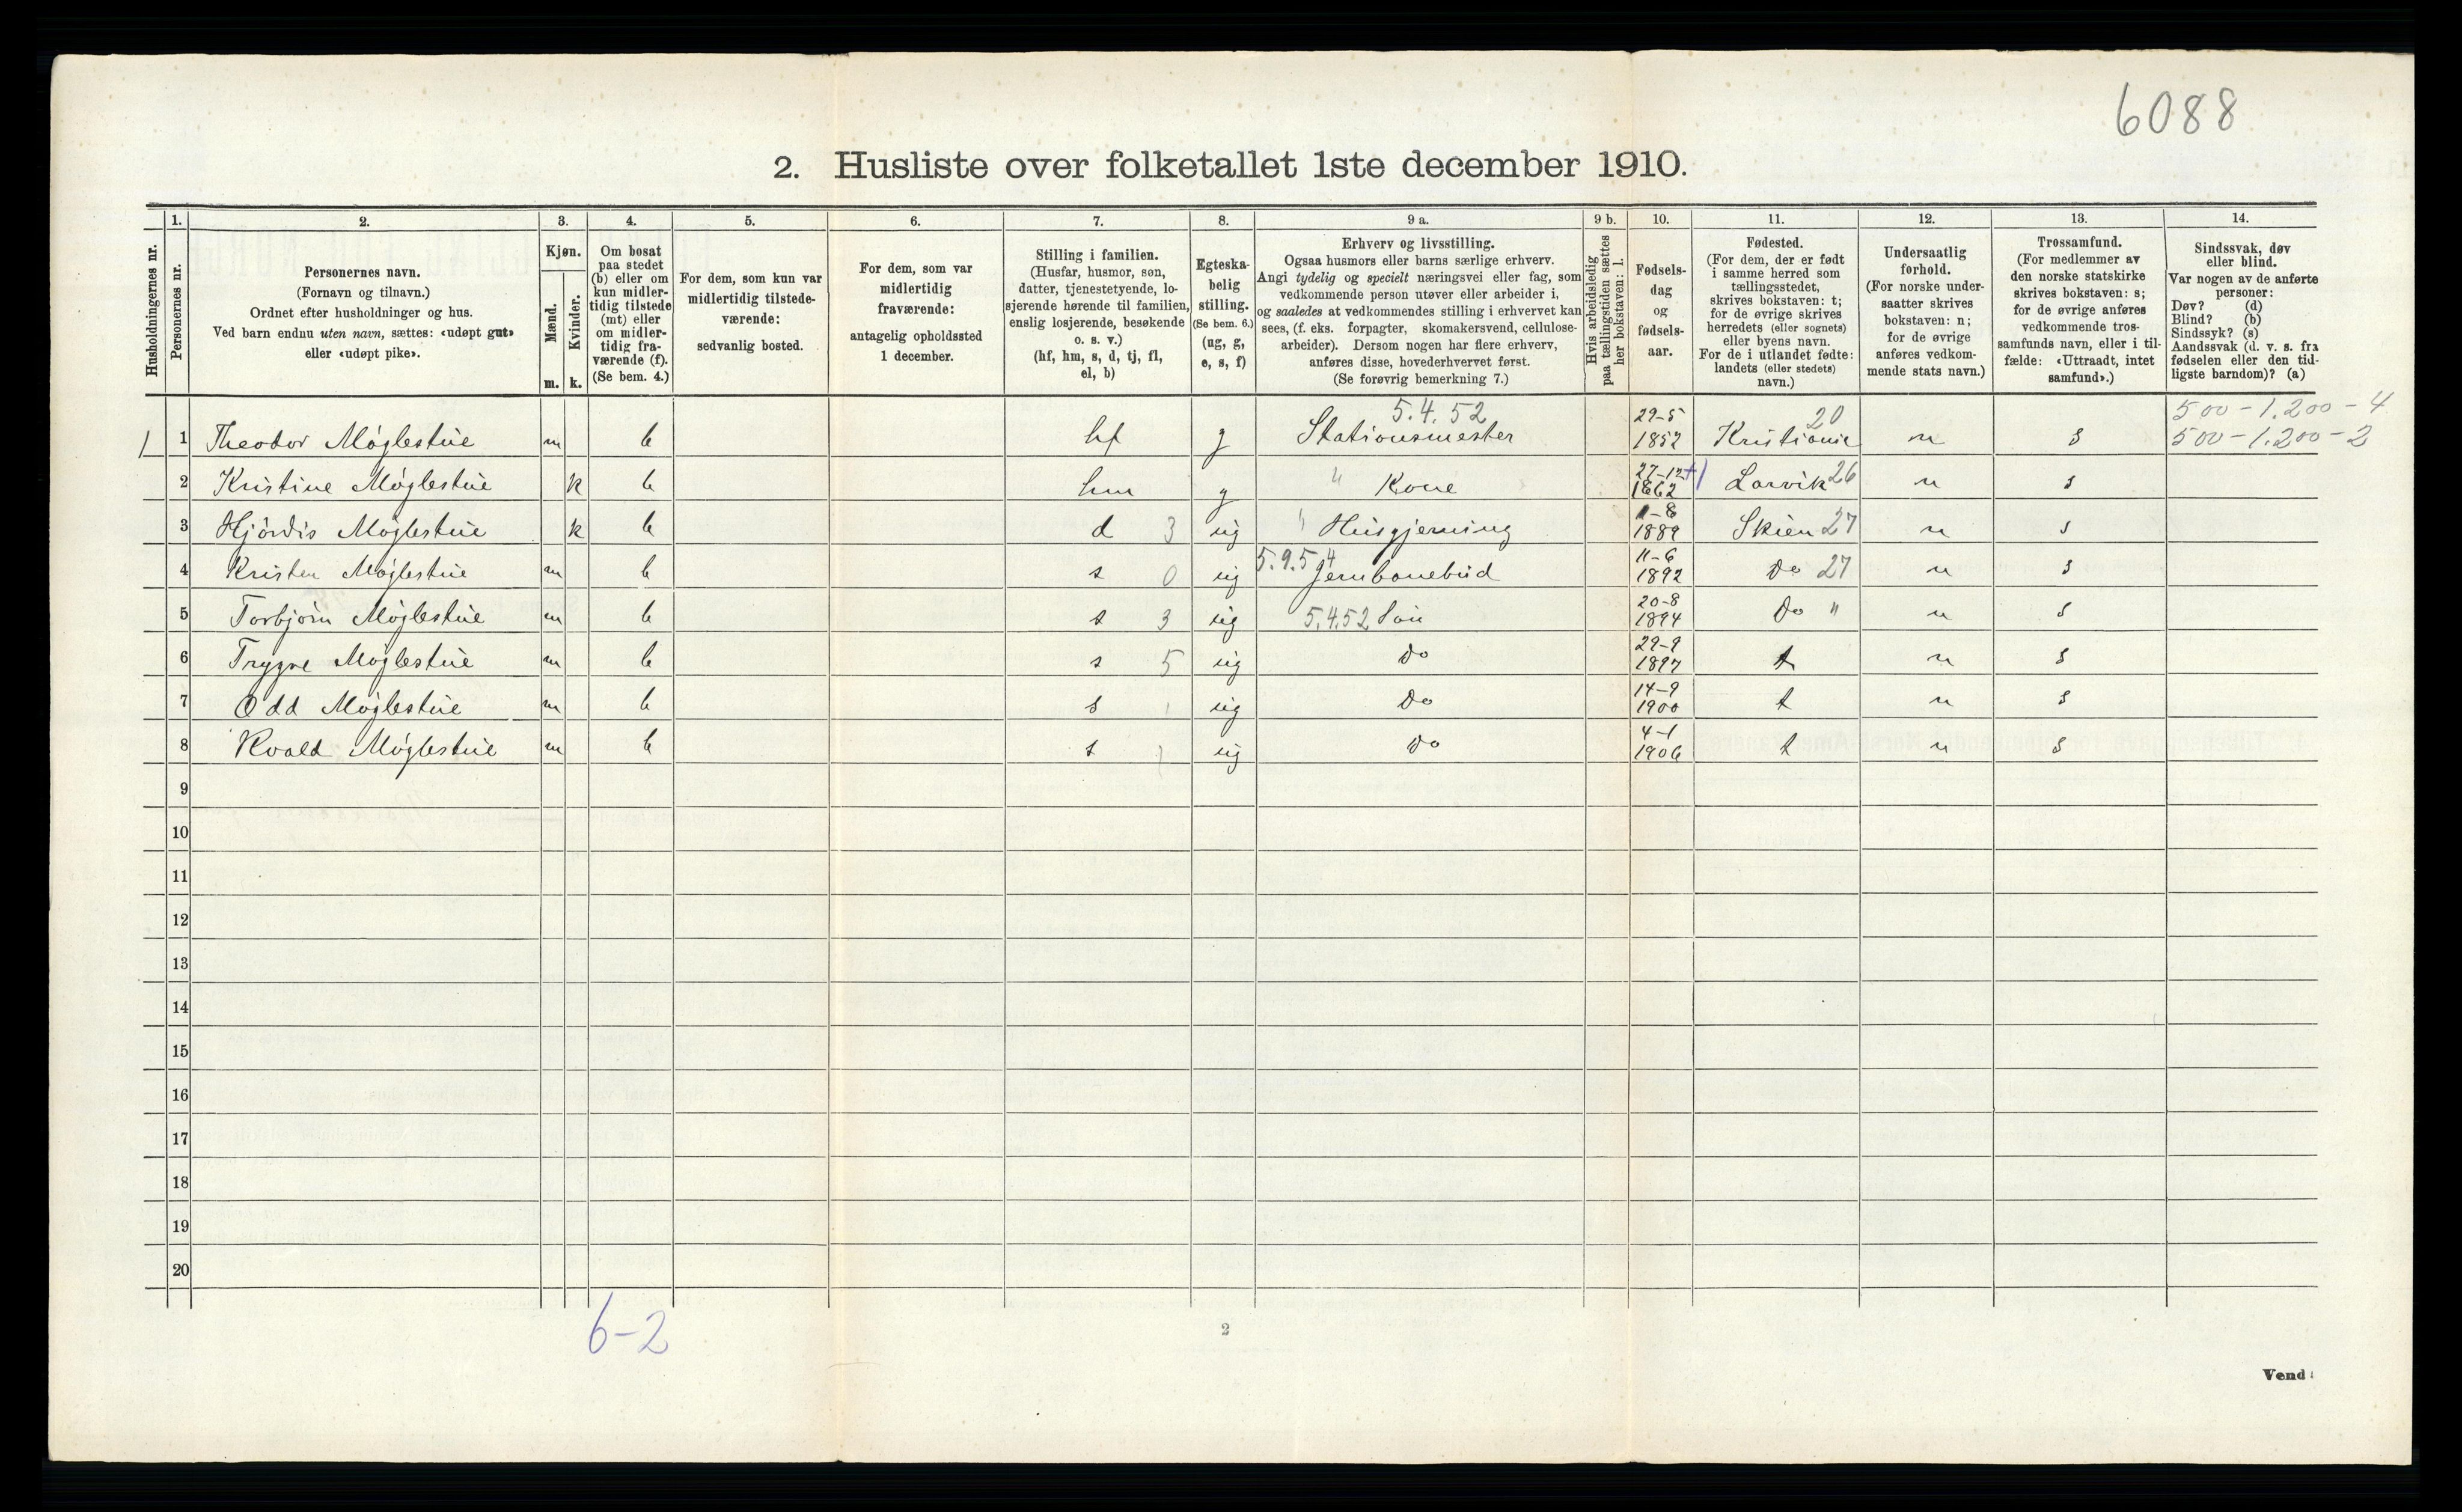 6088
2. Husliste over folketallet 1ste december 1910.
Husholdningernes nr.
1.
Personernes nr.
2.
Personernes navn.
(Fornavn og tilnavn.)
Ordnet efter husholdninger og hus.
Ved barn endnu uten navn, sættes: «udøpt gut»
eller «udøpt pike».
3.
Kjøn.
Mænd.
Kvinder.
m. k.
4.
Om bosat
paa stedet
(b) eller om
kun midler-
tidig tilstede
(mt) eller
om midler-
tidig fra-
værende (f).
(Se bem. 4.)
5.
For dem, som kun var
midlertidig tilstede-
værende:
sedvanlig bosted.
6.
For dem, som var
midlertidig
fraværende:
antagelig opholdssted
1 december.
7.
Stilling i familien.
(Husfar, husmor, søn,
datter, tjenestetyende, lo-
sjerende hørende til familien,
enslig losjerende, besøkende
o. s. v.)
(hf, hm, s, d, tj, fl,
el, b)
8.
Egteska-
belig
stilling.
(Se bem. 6.)
(ug, g,
e, s, f)
9 a.
Erhverv og livsstilling.
Ogsaa husmors eller barns særlige erhverv.
Angi tydelig og specielt næringsvei eller fag, som
vedkommende person utøver eller arbeider i,
og saaledes at vedkommendes stilling i erhvervet kan
sees, (f. eks. forpagter, skomakersvend, cellulose-
arbeider). Dersom nogen har flere erhverv,
anføres disse, hovederhvervet først.
(Se forøvrig bemerkning 7.)
9 b.
Hvis arbeidsledig
paa tællingstiden sættes
her bokstaven: l.
10.
Fødsels-
dag
og
fødsels-
aar.
11.
Fødested.
(For dem, der er født
i samme herred som
tællingsstedet,
skrives bokstaven: t;
for de øvrige skrives
herredets (eller sognets)
eller byens navn.
For de i utlandet fødte:
landets (eller stedets)
navn.)
12.
Undersaatlig
forhold.
(For norske under-
saatter skrives
bokstaven: n;
for de øvrige
anføres vedkom-
mende stats navn.)
13.
Trossamfund.
(For medlemmer av
den norske statskirke
skrives bokstaven: s;
for de øvrige anføres
vedkommende tros-
samfunds navn, eller i til-
fælde: «Uttraadt, intet
samfund».)
14.
Sindssvak, døv
eller blind.
Var nogen av de anførte
personer:
Døv? (d)
Blind? (b)
Sindssyk? (s)
Aandssvak (d. v. s. fra
fødselen eller den tid-
ligste barndom)? (a)
5.4.52 29-5 20 500-1.200-4
1 1 Theodor Møglestue m b hf g Stationsmester 1852 Kristiania n s 500-1.200-2
27-12 +1
2 Kristine Møglestue k b hm g " Kone 1862 Larvik 26 n s
1-8
3 Hjördis Møglestue k b d 3 ug " Husgjerning 1889 Skien 27 n s
5.9.5 4 11-6
4 Kristen Møglestue m b s 0 ug Jernbanebud 1892 Do 27 n s
20-8
5 Torbjörn Møglestue m b s 3 ug 5.4.52 Sön 1894 Do " n s
29-9
6 Trygve Møglestue m b s 5 ug Do 1897 t n s
14-9
7 Odd Møglestue m b s 1 ug Do 1900 t n s
4-1
8 Møglestue m b s ug Do 1906 t n s
9
10
11
12
13
14
15
16
17
18
19
20
6-2
2
Vend!